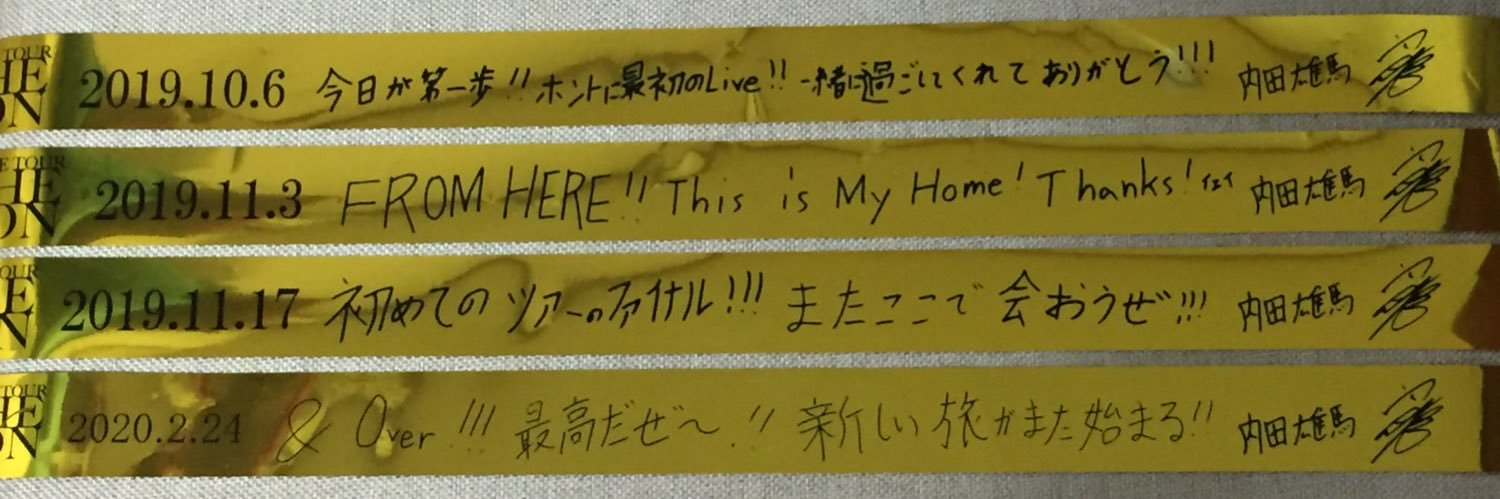 TOUR
HE
ON
2019.10.6 今日が第一歩!! ホントに最初のLive!! 一緒に過ごしてくれて ありがとう!!! 内田雄馬
E TOUR
HE
ON
2019.11.3 FROM HERE!! This is My Home! Thanks! イェイ 内田雄馬
TOUR
E
N
2019.11.17 初めてのツアーのファイナル!!! またここで会おうぜ!!! 内田雄馬
TOUR
HE
ON
2020.2.24 & Over!!! 最高だぜ〜!! 新しい旅がまた始まる!! 内田雄馬